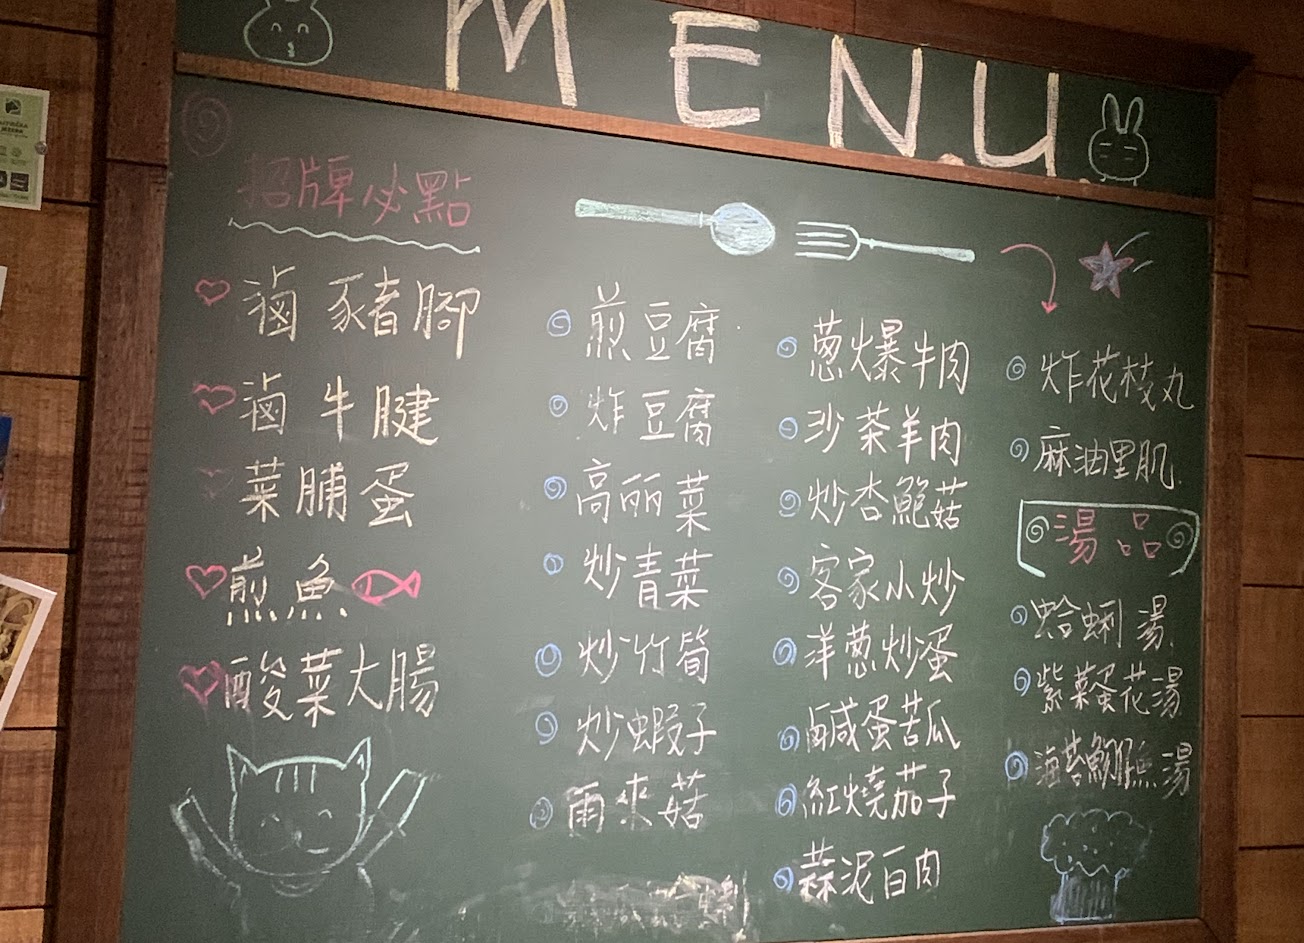 MENU
招牌必點
滷豬腳
滷牛腱
菜脯蛋
煎魚
酸菜大腸
煎豆腐
炸豆腐
高丽菜
炒青菜
炒竹筍
炒蝦子
雨來菇
蔥爆牛肉
沙茶羊肉
炒杏鮑菇
客家小炒
洋蔥炒蛋
鹹蛋苦瓜
紅燒茄子
蒜泥白肉
炸花枝丸
麻油里肌
湯品
蛤蜊湯
紫菜蛋花湯